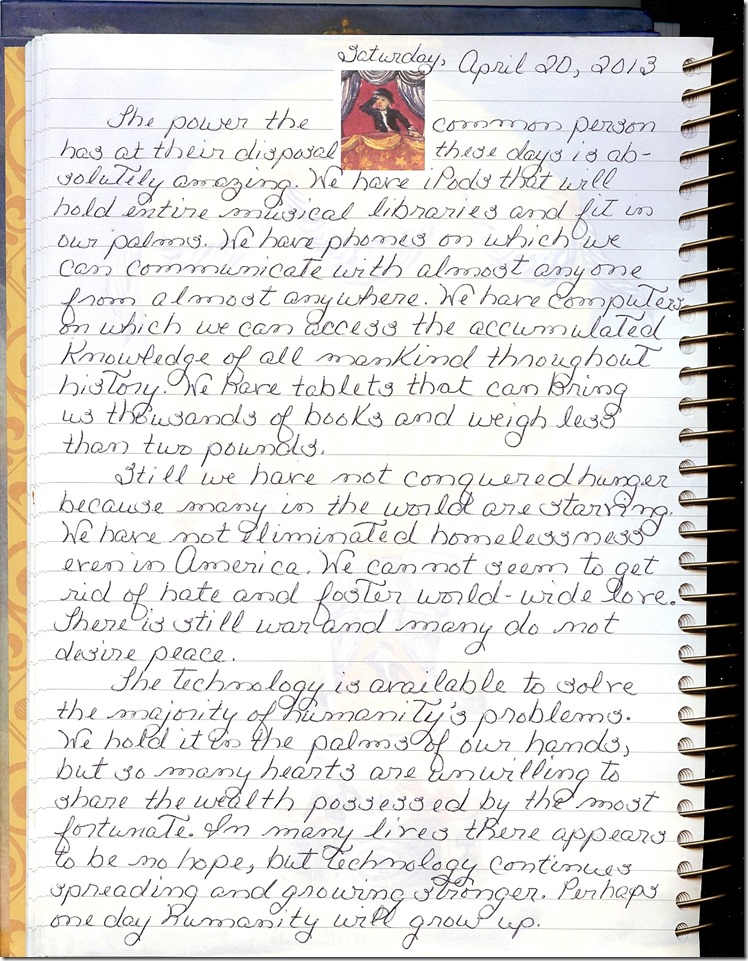 Saturday, April 20, 2013
The power the common person
has at their disposal these days is ab-
solutely amazing. We have iPods that will
hold entire musical libraries and fit in
our palms. We have phones on which we
can communicate with almost anyone
from almost anywhere. We have computers
on which we can access the accumulated
knowledge of all mankind throughout
history. We have tablets that can bring
us thousands of books and weigh less
than two pounds.
Still we have not conquered hunger
because many in the world are starving.
We have not eliminated homelessness
even in America. We cannot seem to get
rid of hate and foster world-wide love.
There is still war and many do not
desire peace.
The technology is available to solve
the majority of humanity's problems.
We hold it in the palms of our hands,
but so many hearts are unwilling to
share the wealth possessed by the most
fortunate. In many lives there appears
to be no hope, but technology continues
spreading and growing stronger. Perhaps
one day humanity will grow up.